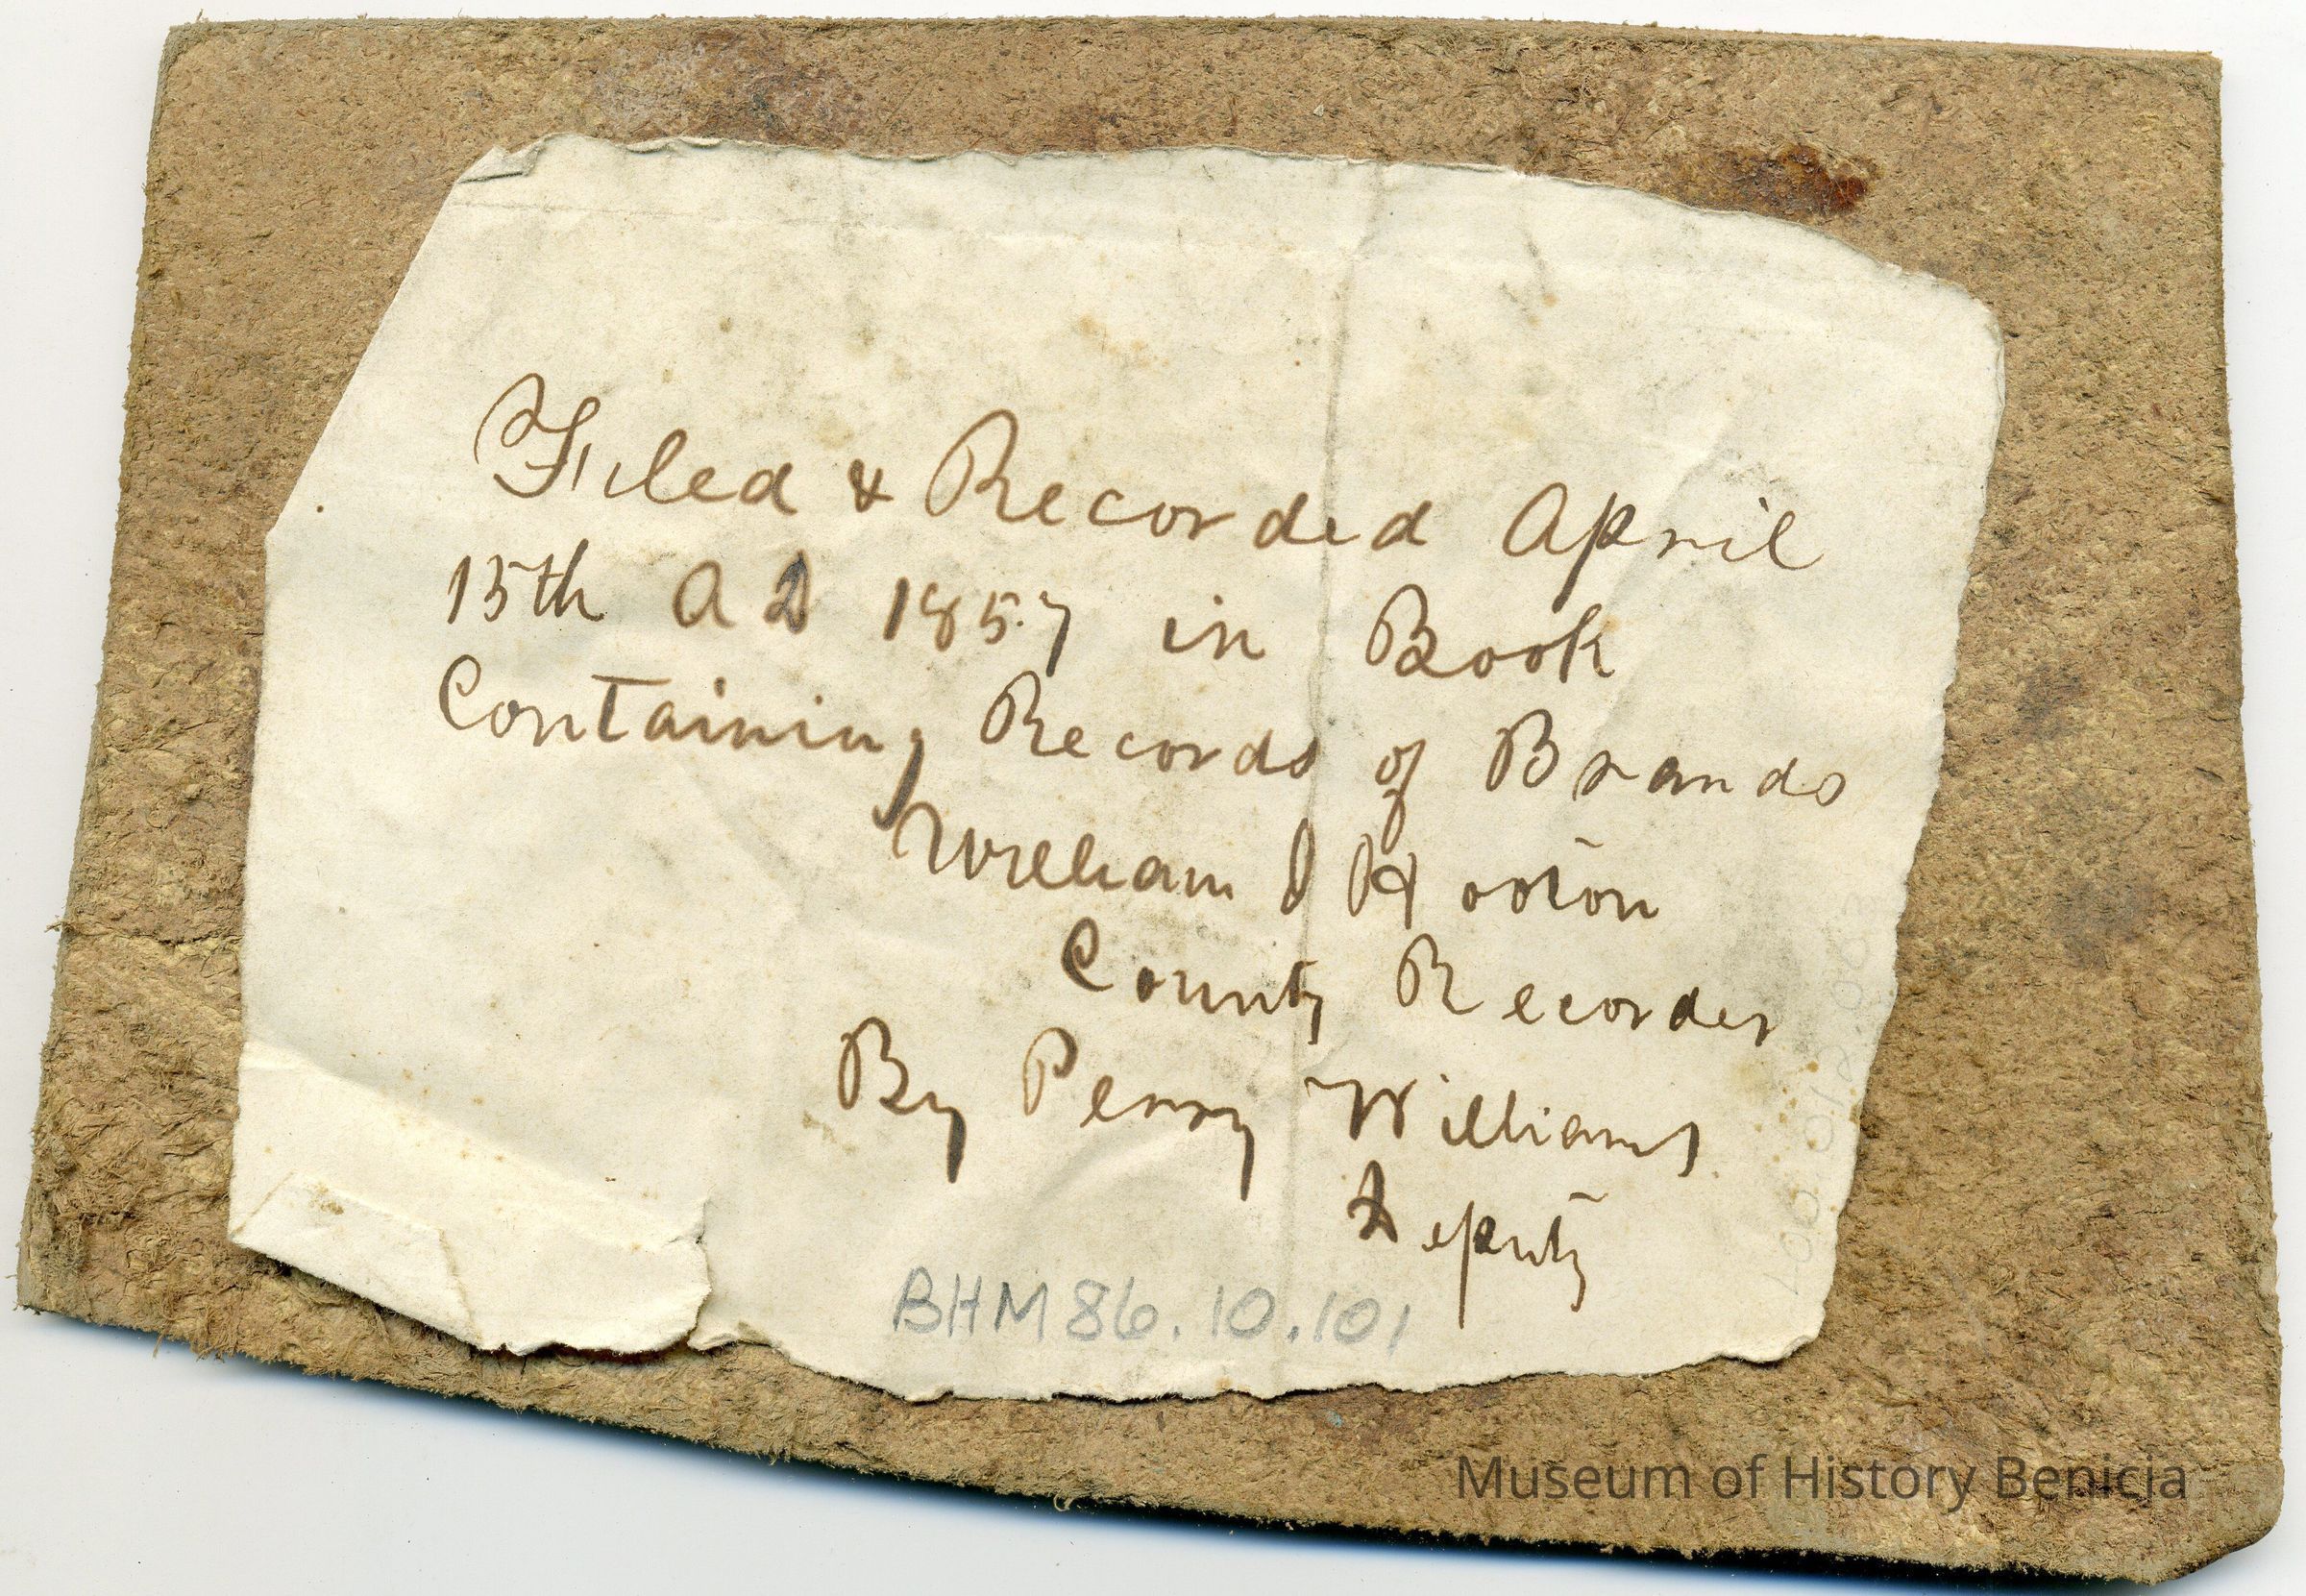 Filed & Recorded April
15th A D 1857 in Book
Containing Records of Brands
William J Hooton
County Recorder
By Perry Williams
Deputy
BHM 86.10.101
Museum of History Benicia